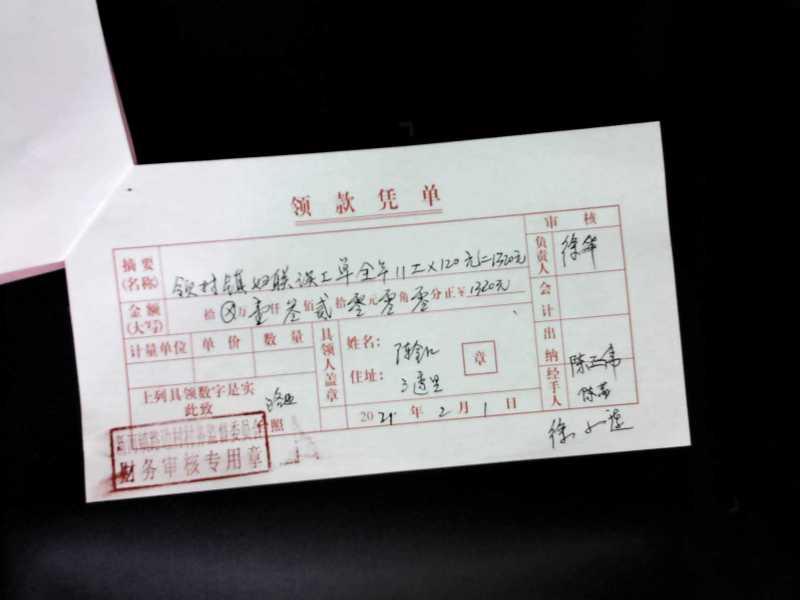 领款凭单
审核
摘要(名称) 领村镇妇联误工单全年11工×120元=1320元
负责人 徐华
金额(大写) 拾⊗万壹仟叁佰贰拾零元零角零分正¥1320元
会计
计量单位 单价 数量
具领人盖章
姓名:
章
住址:
出纳 陈正伟
上列具领数字是实
此致
经手人
照
2021年2月1日
财务审核专用章